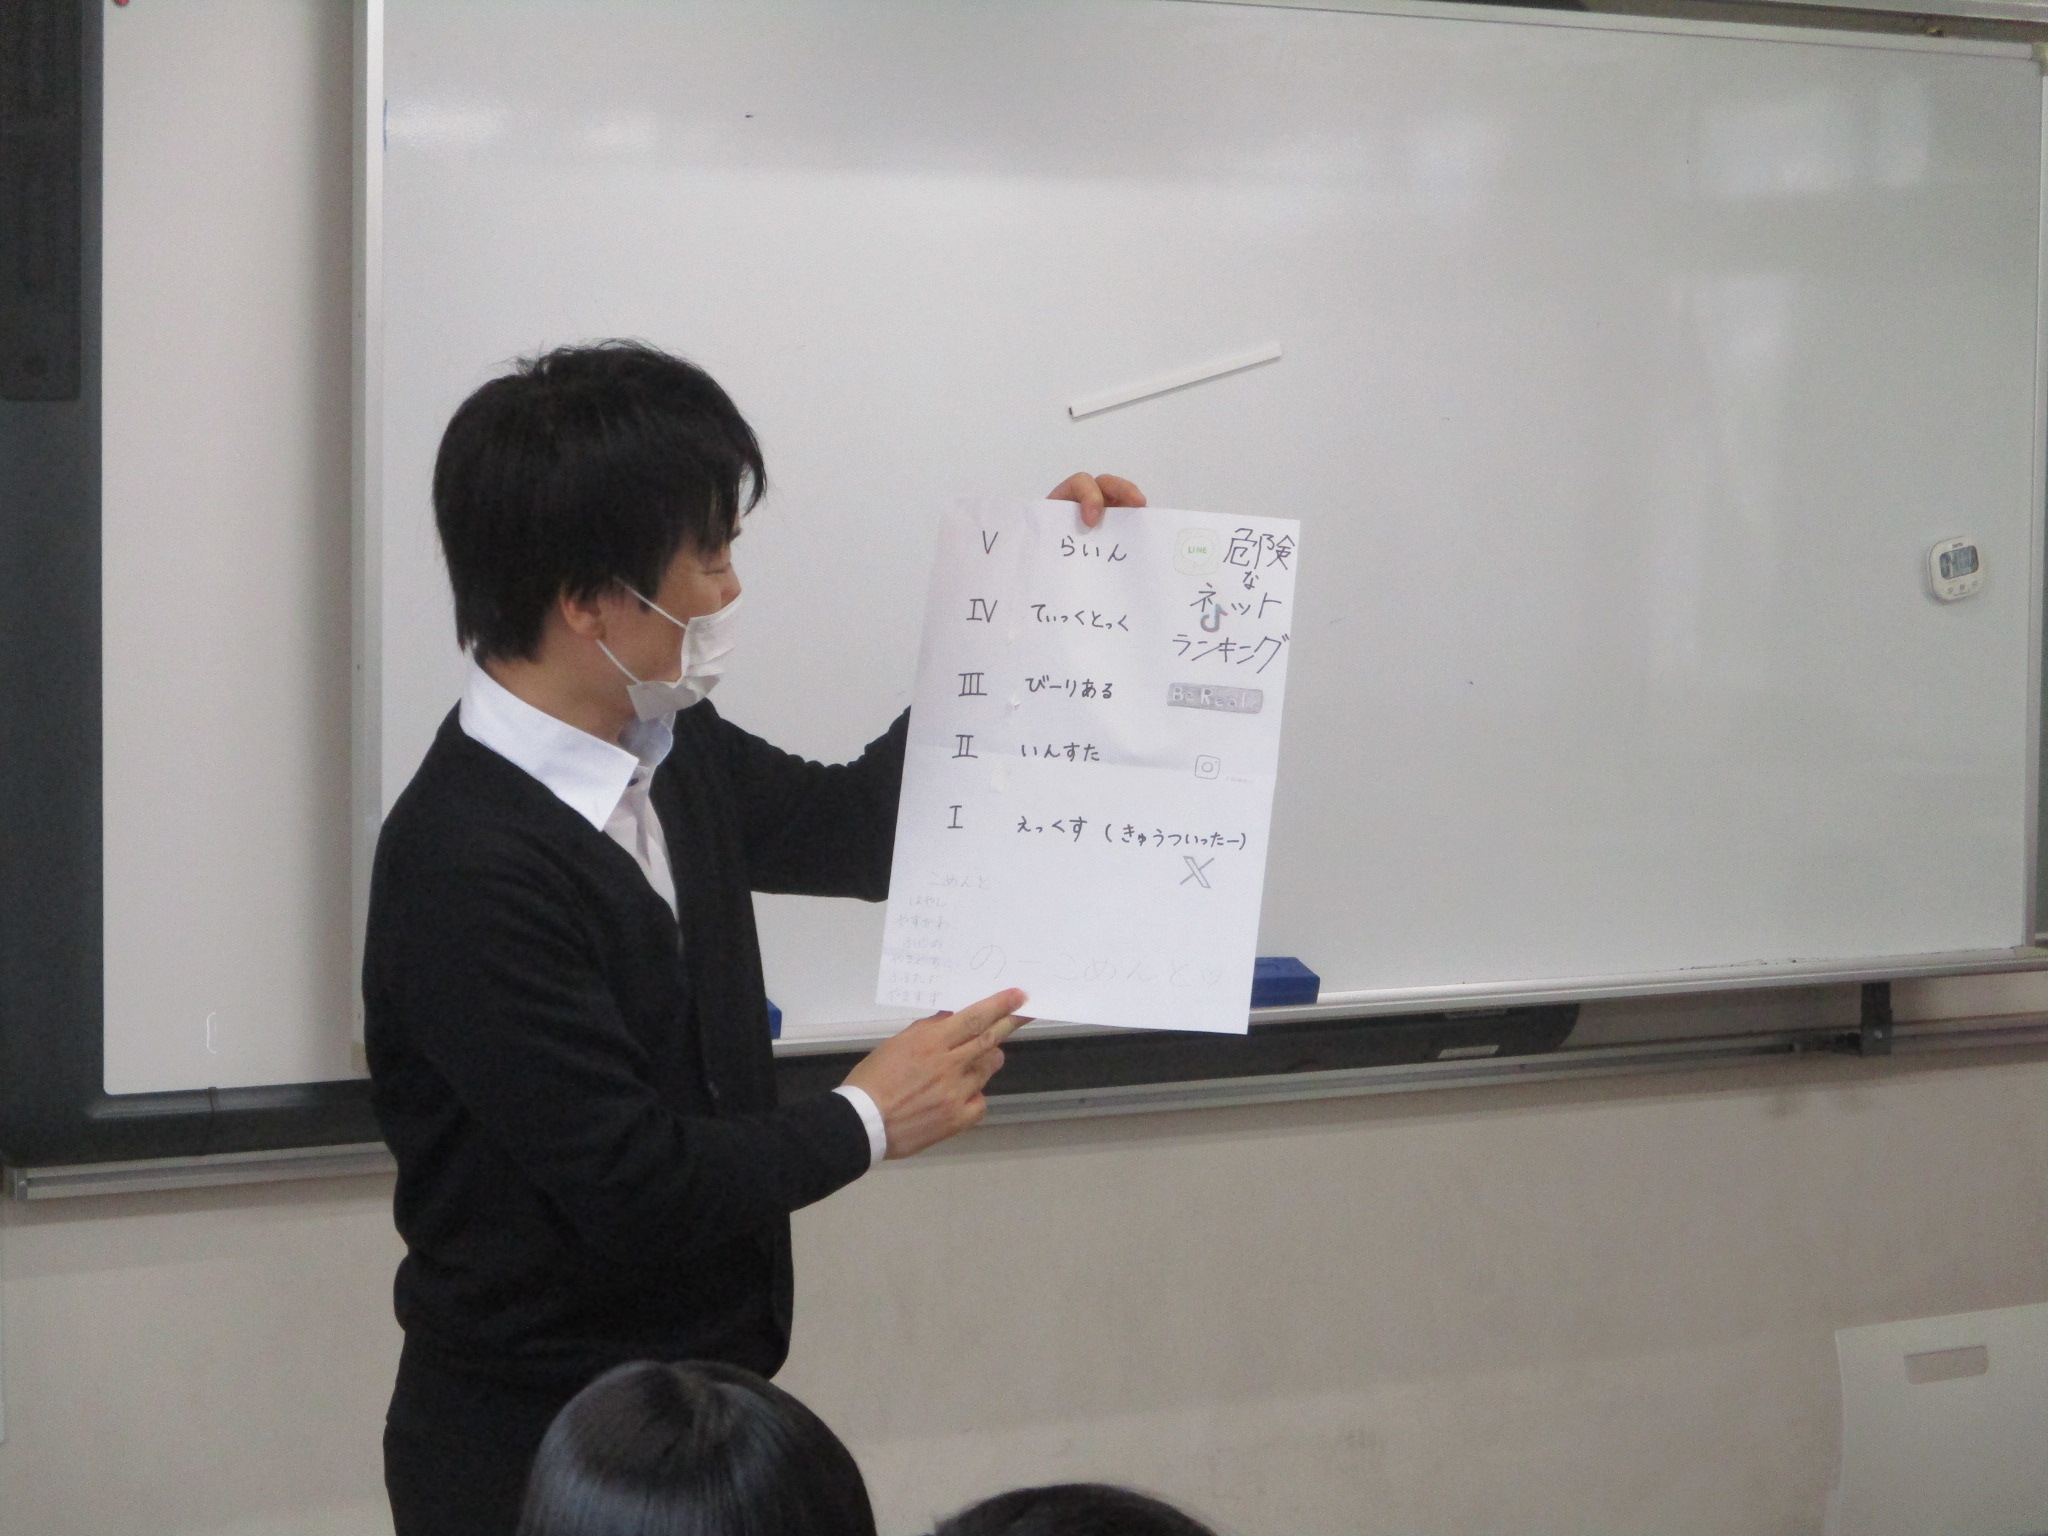 危険
な
ネット
ランキング
V らいん LINE
IV てぃっくとっく
III びーりある BeReal.
II いんすた
I えっくす (きゅうついったー)
X
こめんと
はやし
やすかわ
ふじの
のーこめんとッ